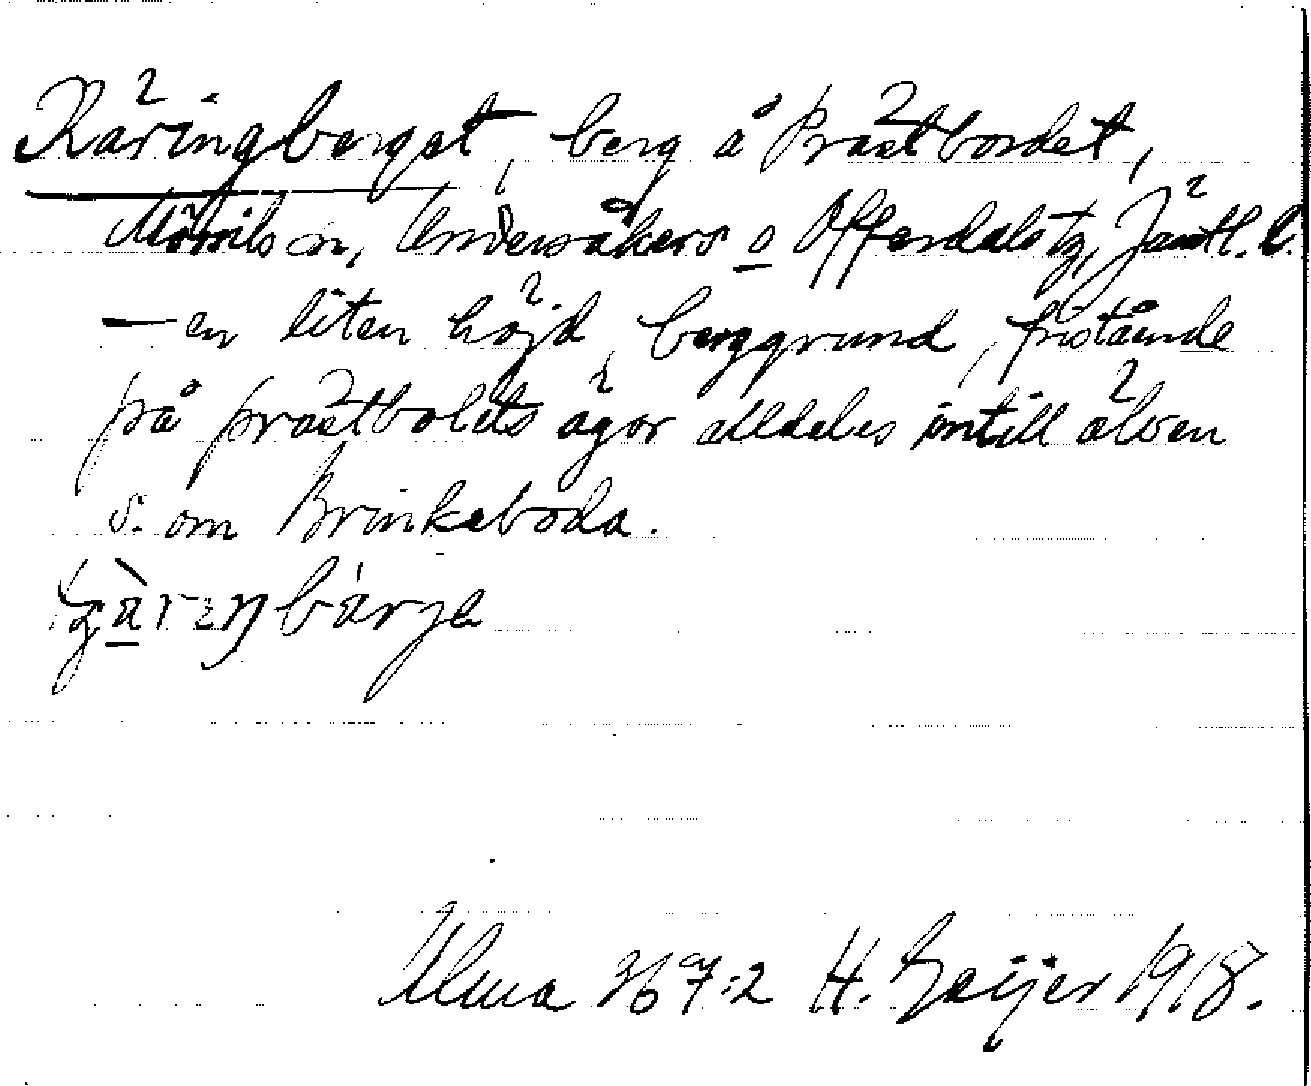 Käringberget, berg å Prästbordet,
Mörsils sn, Undersåkers o Offerdals tg, Jämtl. l.
– en liten höjd, berggrund, fristående
på prästbolets ägor alldeles intill älven
S. om Brinkeboda.
Ulma 367:2 H. Geijer 1918.